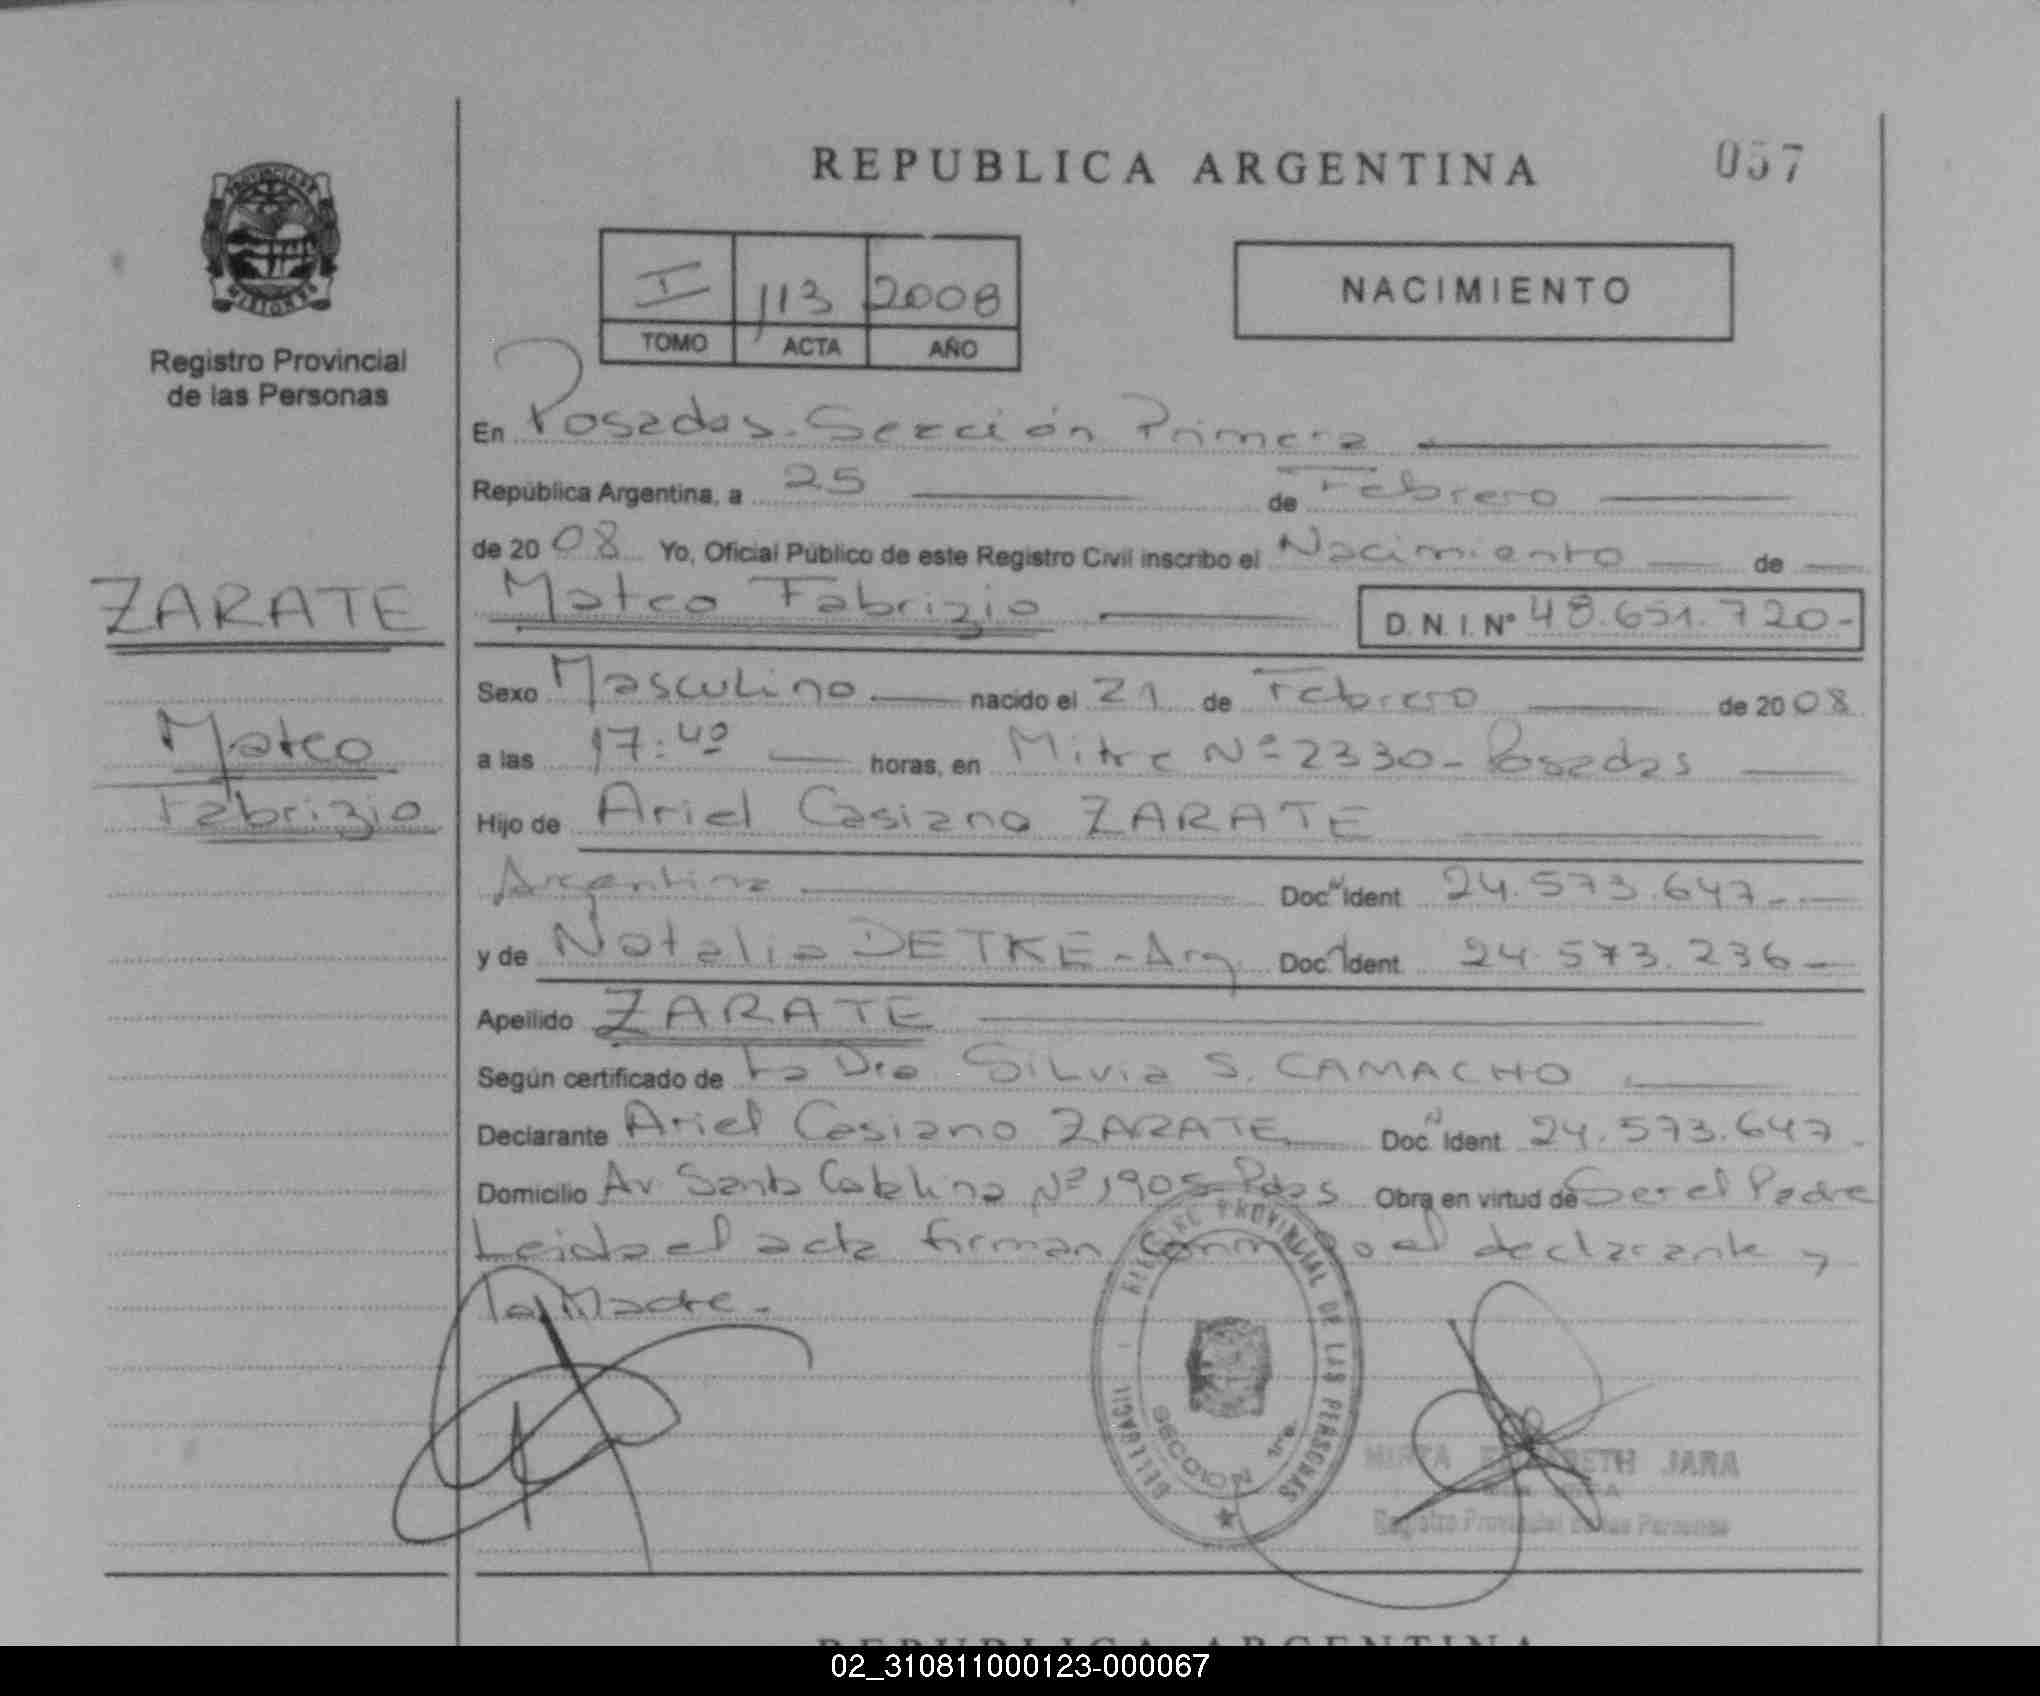 REPUBLICA ARGENTINA
057
PROVINCIA DE
MISIONES
Registro Provincial
de las Personas
I 113 2008
TOMO ACTA AÑO
NACIMIENTO
En Posadas - Sección Primera
República Argentina, a 25 de Febrero
de 2008 Yo, Oficial Público de este Registro Civil inscribo el Nacimiento de
ZARATE
Mateo Fabrizio D.N.I. Nº 48.651.720-
Mateo
Fabrizio
Sexo Masculino nacido el 21 de Febrero de 2008
a las 17:40 horas, en Mitre Nº 2330 - Posadas
Hijo de Ariel Casiano ZARATE
Argentina Doc. Ident 24.573.647-
y de Natalia DETKE - Arg. Doc. Ident 24.573.236
Apellido ZARATE
Según certificado de La Dra. Silvia S. CAMACHO
Declarante Ariel Casiano ZARATE Doc. Ident 24.573.647-
Domicilio Av. Santa Catalina Nº 1905 Pdas Obra en virtud de Ser el Padre
Leida el acta firman conmigo el declarante y
la Madre.-
PROVINCIAL DE LAS PERSONAS
SECCION 1ra.
JARA
Registro Provincial de las Personas
REPUBLICA ARGENTINA
02_310811000123-000067